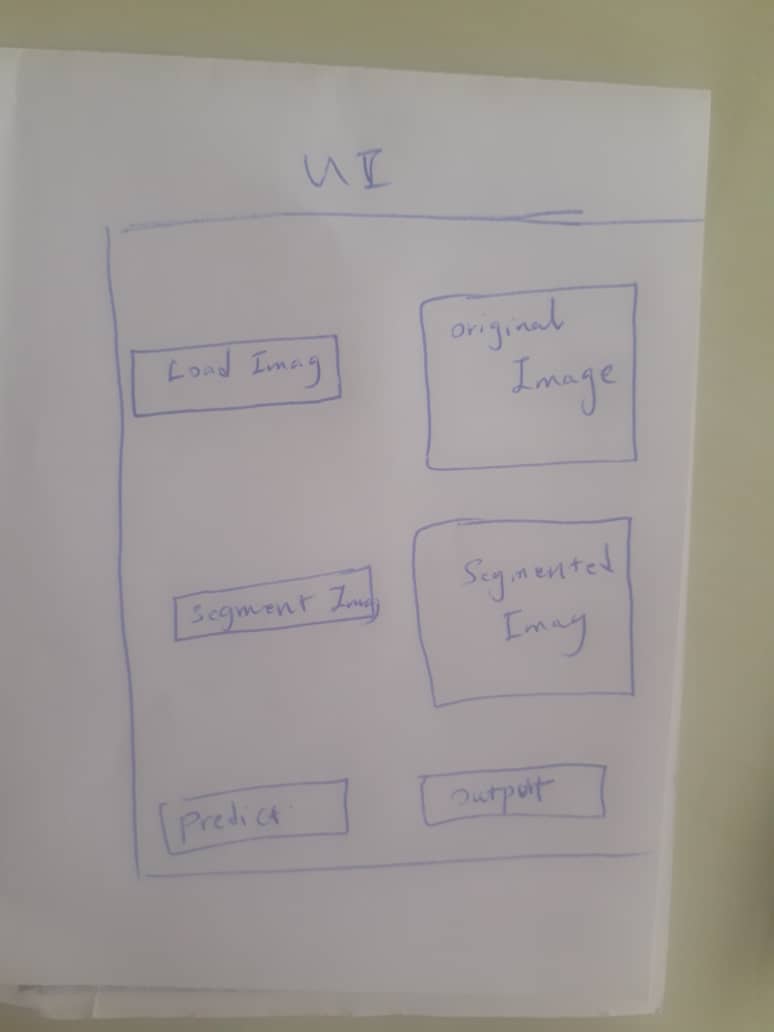 UI
Load Imag
original
Image
Segment Imag
Segmented
Imag
Predict
output